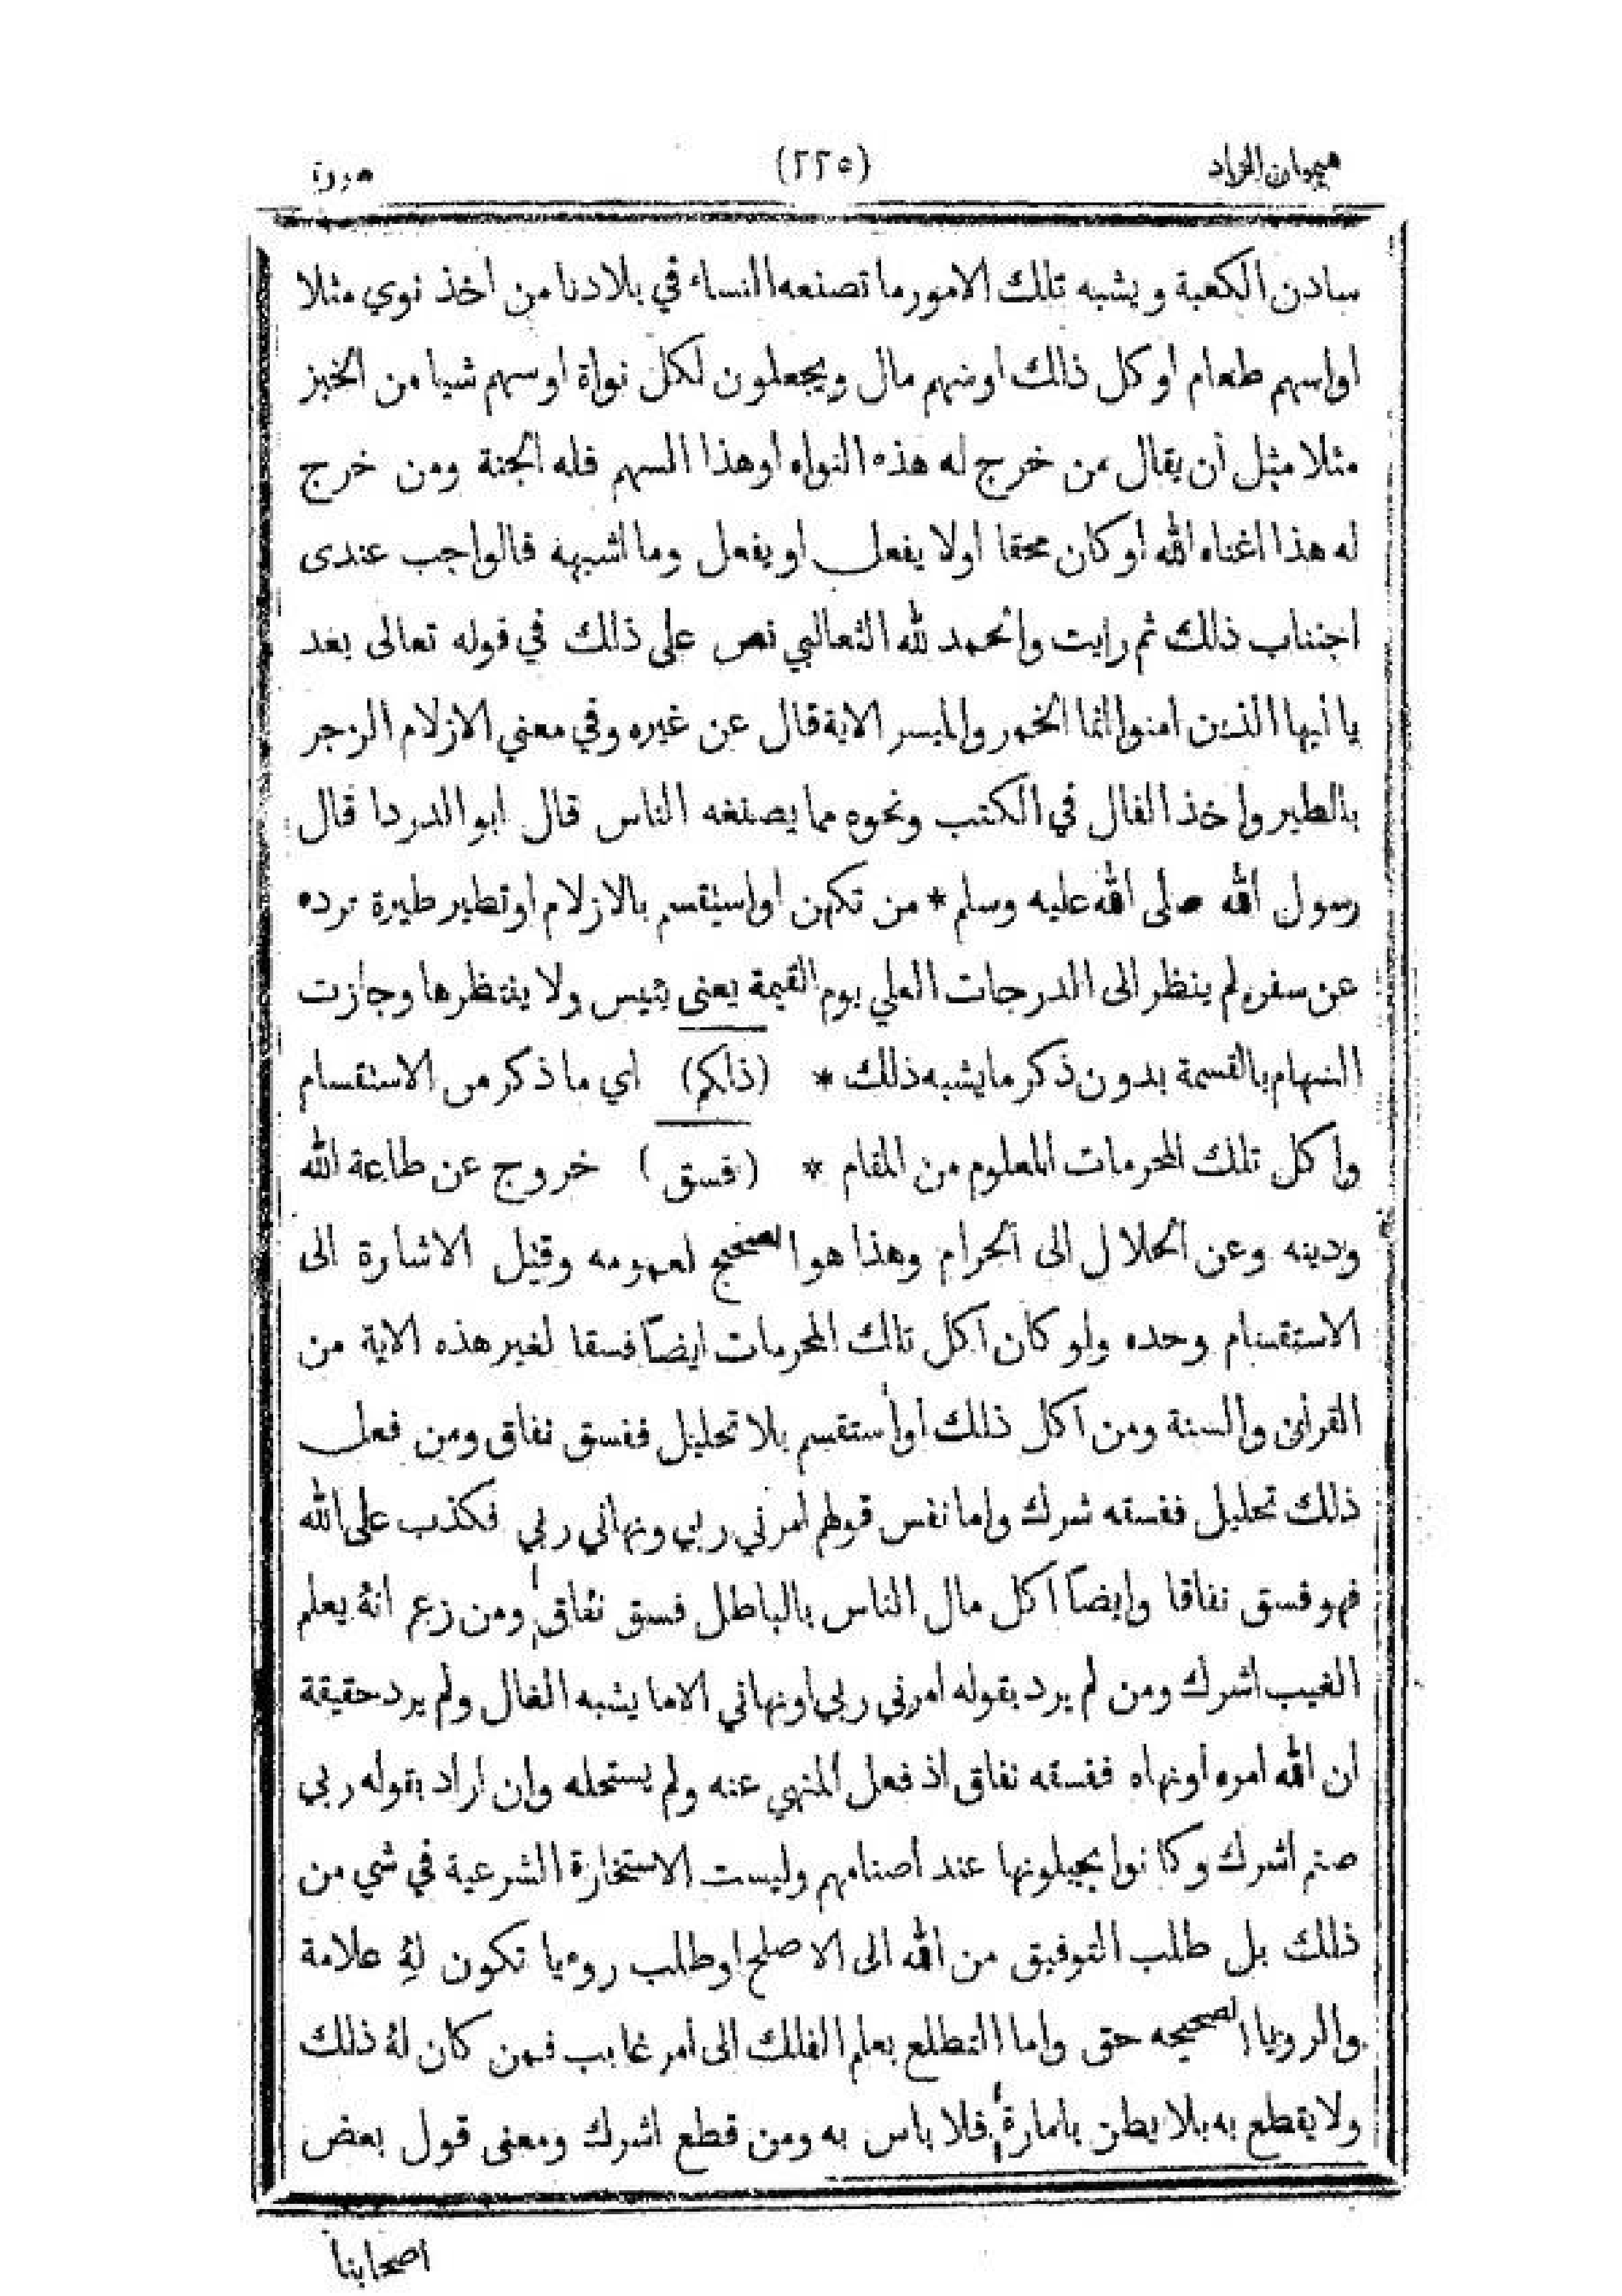 هميان الزاد (٢٢٥)
سادن الكعبة ويشبه تلك الامور ما تصنعه النساء في بلادنا من اخذ نوي مثلا
اواسهم طعام أو كل ذالك اوضهم مال ويجعلون لكل نواة اوسهم شيا من الخبز
مثلا مثل أن يقال من خرج له هذه النواه أوهذا السهم فله الجنة ومن خرج
له هذا اغناه الله أوكان محقا اولا يفعل اويفعل وما اشبهه فالواجب عندى
اجتناب ذلك ثم رايت والحمد لله الثعالبي نص على ذلك في قوله تعالى بعد
يا أيها الذين امنوا انما الخمر والميسر الاية قال عن غيره وفي معني الازلام الزجر
بالطير واخذ الفال في الكتب ونحوه مما يصنعه الناس قال ابوالدردا قال
رسول الله صلى الله عليه وسلم * من تكهن اواستقسم بالازلام اوتطير طيرة ترده
عن سفره لم ينظر الى الدرجات العلي يوم القيمة يعنى يئيس ولا ينتظرها وجازت
السهام بالقسمة بدون ذكر ما يشبه ذلك * (ذاكم) اي ما ذكر من الاستقسام
واكل تلك المحرمات المعلوم من المقام * (فسق) خروج عن طاعة الله
ودينه وعن الحلال الى الحرام وهذا هو الصحيح لعمومه وقيل الاشارة الى
الاستقسام وحده ولو كان اكل تلك المحرمات ايضاً فسقا لغير هذه الاية من
القرأن والسنة ومن اكل ذلك أوأستقسم بلا تحليل ففسق نفاق ومن فعل
ذلك تحليل ففسقه شرك واما نفس قولهم امرني ربي ونهاني ربي فكذب على الله
فهو فسق نفاقا وايضاً اكل مال الناس بالباطل فسق نفاق ومن زعم انهُ يعلم
الغيب اشرك ومن لم يرد بقوله امرني ربي اونهاني الا ما يشبه الفال ولم يرد حقيقة
أن الله امره أونهاه ففسقه نفاق اذ فعل المنهي عنه ولم يستحله وان اراد بقوله ربي
صنم اشرك وكانوا يجيلونها عند أصنامهم وليست الاستخارة الشرعية في شي من
ذلك بل طلب التوفيق من الله الى الاصلح اوطلب روءيا تكون لهُ علامة
والرويا الصحيحه حق واما التطلع بعلم الفلك الى أمر غايب فمن كان لهُ ذلك
ولا يقطع به بلا يظن بامارة فلا باس به ومن قطع اشرك ومعنى قول بعض
اصحابنا